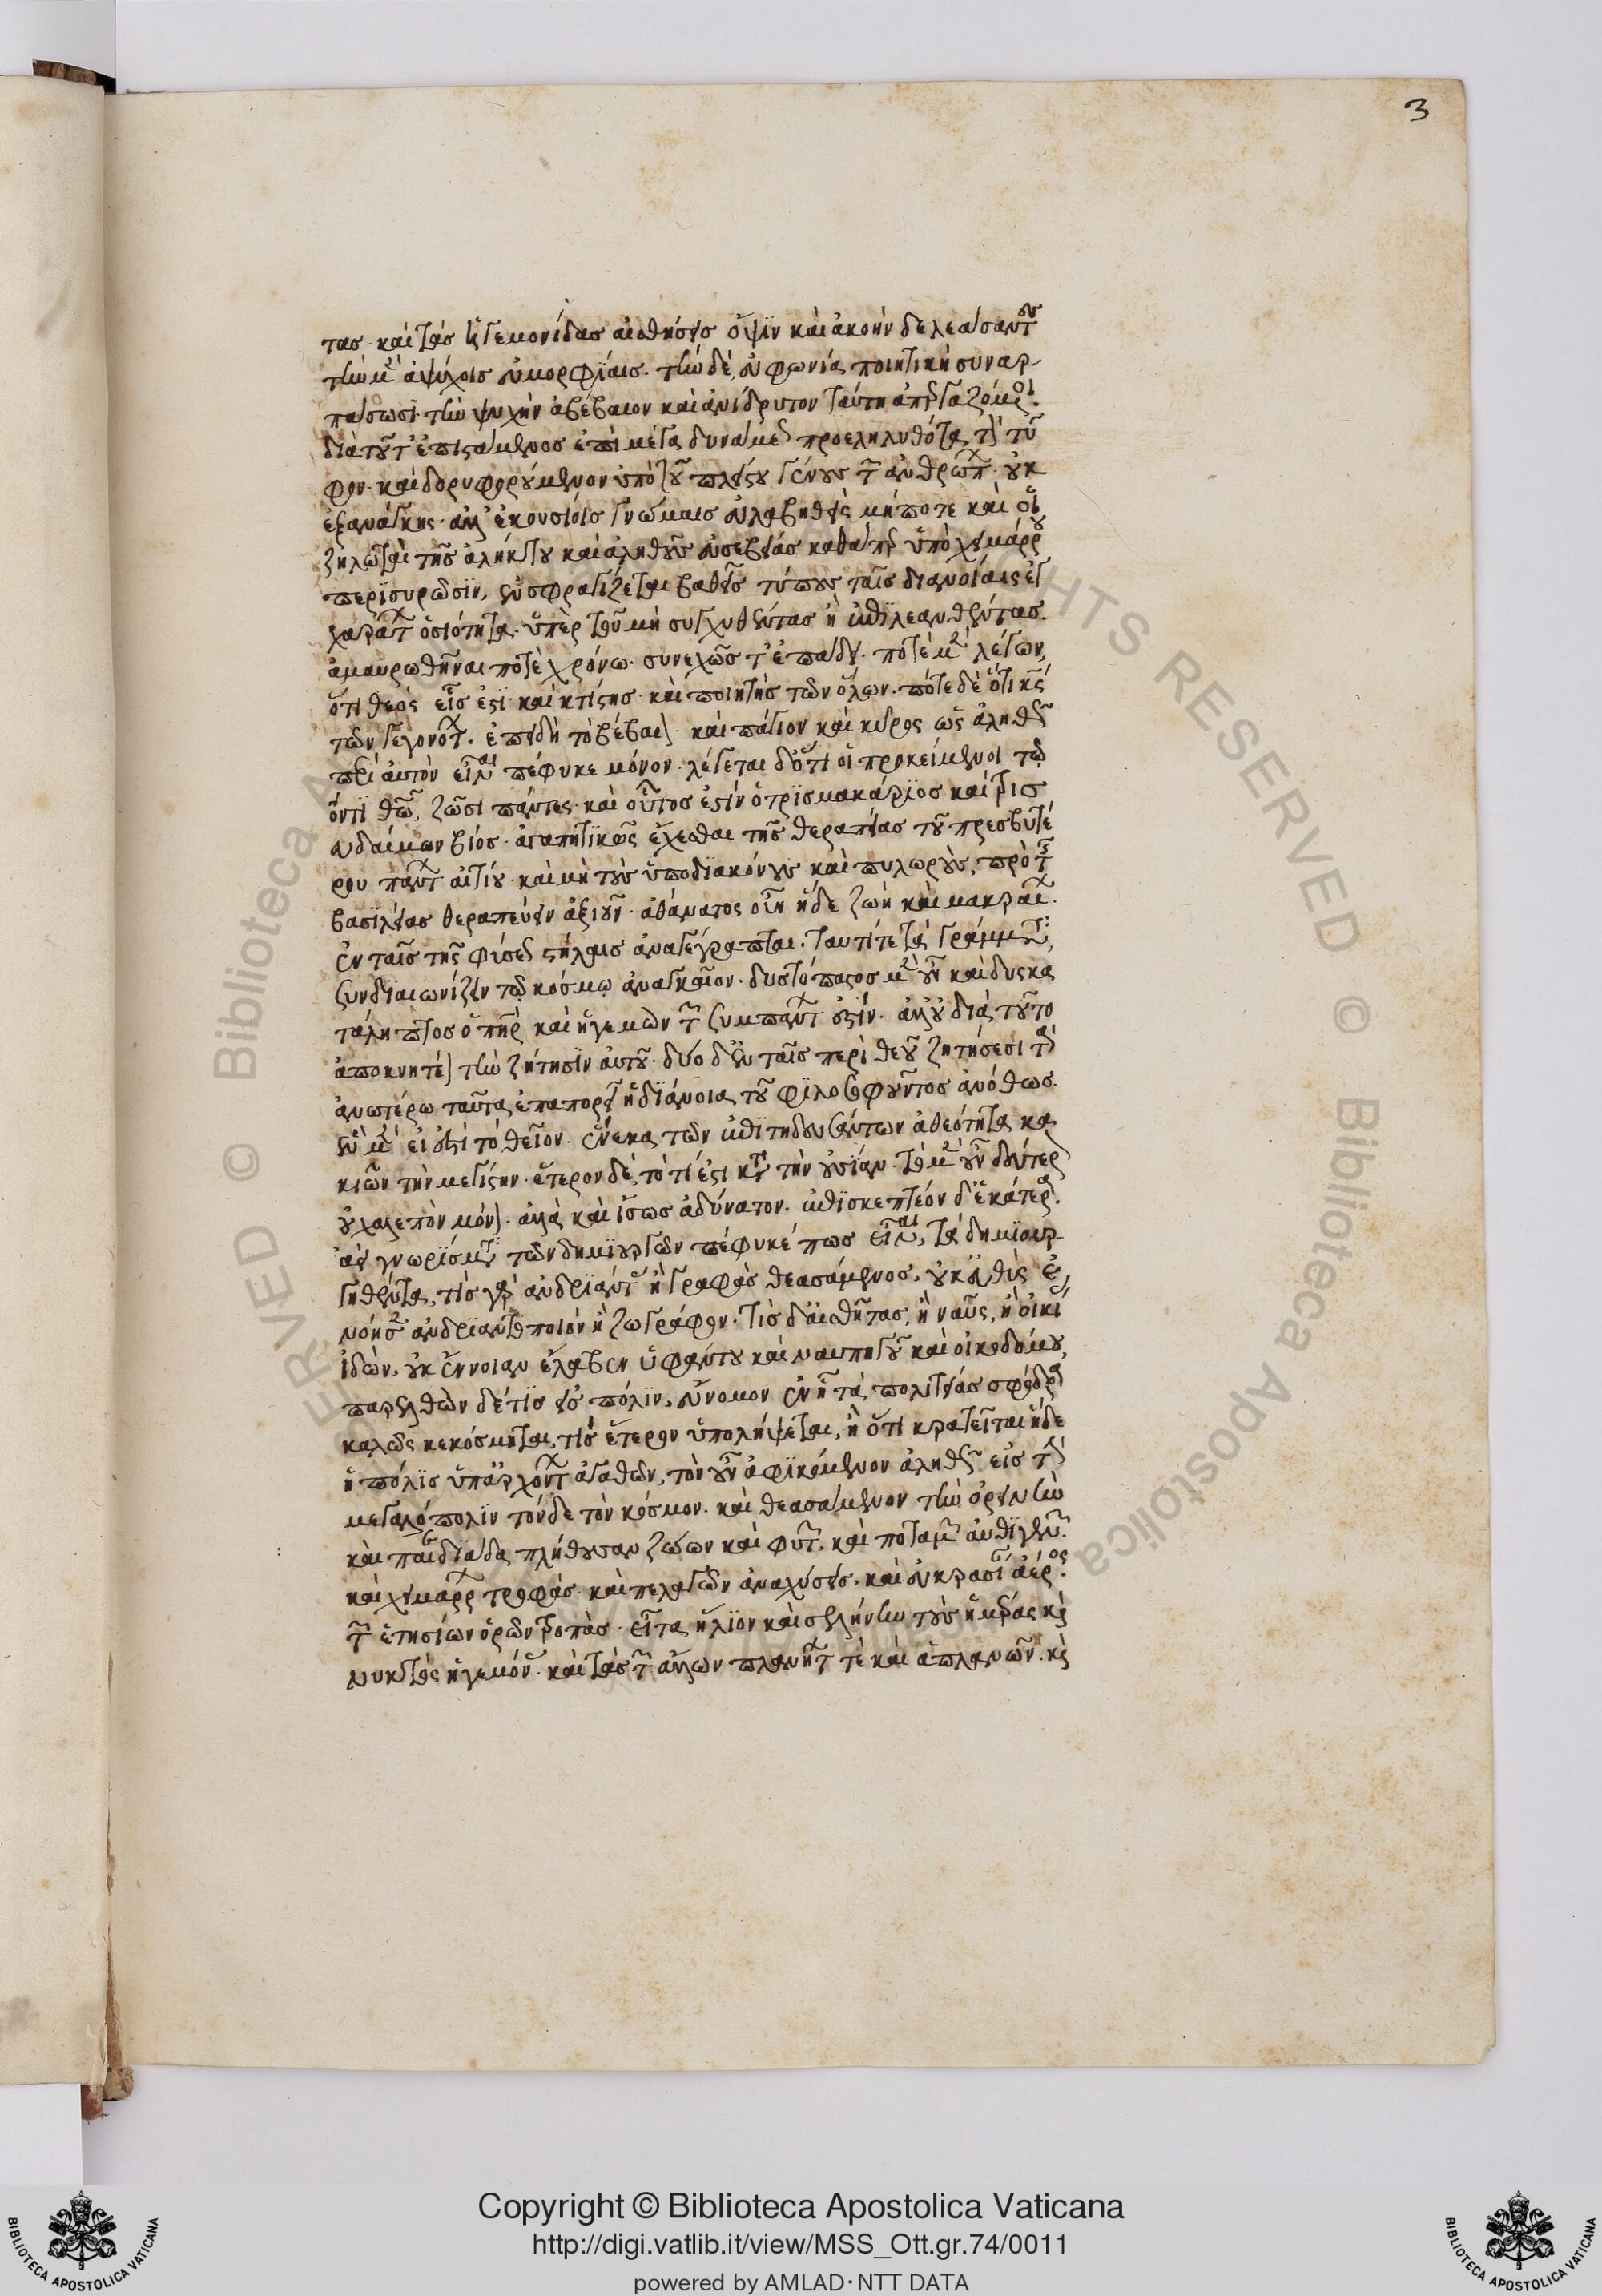 3
τας· καὶ τὰς ἡγεμονίδας αἰσθήσεις ὄψιν καὶ ἀκοὴν δελεάσαντες
τὴν μὲν ἀψύχοις εὐμορφίαις. τὴν δὲ, εὐφωνία ποιητικῇ συναρ-
πάσωσι τὴν ψυχὴν ἀβέβαιον καὶ ἀνίδρυτον ταύτην ἀπεργαζόμενοι.
διὰ τοῦτ' ἐπιστάμενος ἐπὶ μέγα δυνάμεως προεληλυθότα τὸν τῦ
φον· καὶ δορυφορούμενον ὑπὸ τοῦ πλείστου γένους τῶν ἀνθρώπων· οὐκ
ἐξ ἀνάγκης· ἀλλ' ἑκουσίοις γνώμαις εὐλαβηθεὶς μήποτε καὶ οἱ
ζηλωταὶ τῆς ἀλήκτου καὶ ἀληθοῦς εὐσεβείας καθάπερ ὑπὸ χειμάρρου
περισυρῶσιν, ἐνσφραγίζεται βαθεῖς τύπους ταῖς διανοίαις ἐγ
χαράττων ὁσιότητα· ὑπὲρ τοῦ μὴ συγχυθέντας ἢ ἐπιλεανθέντας
ἀμαυρωθῆναι ποτὲ χρόνω· συνεχῶς τ' ἐπάδει· ποτὲ μὲν λέγων,
ὅτι θεὸς εἷς ἐστι· καὶ κτίστης· καὶ ποιητὴς τῶν ὅλων· πότε δὲ ὅτι κύριος
τῶν γεγονότων. ἐπειδὴ τὸ βέβαιον· καὶ πάγιον καὶ κῦρος ὡς ἀληθῶς
περὶ αὐτὸν εἶναι πέφυκε μόνον· λέγεται δ' ὅτι οἱ προκείμενοι τῷ
ὄντι θεῷ, ζῶσι πάντες· καὶ οὗτος ἐστὶν ὁ τρισμακάριος καὶ τρισ
ευδαίμων βίος· ἀγαπητικῶς ἔχεσθαι τῆς θεραπείας τοῦ πρεσβυτέ
ρου πάντων αἰτίου· καὶ μὴ τοὺς ὑποδιακόνους καὶ πυλωροὺς, πρὸ τοῦ
βασιλέως θεραπεύειν ἀξιοῦν· ἀθάνατος οὖν ἥδε ζωὴ καὶ μακραίων·
ἐν ταῖς τῆς φύσεως στήλαις ἀναγέγραπται· ταυτί τε τὰ γράμματα
συνδιαιωνίζειν τῷ κόσμῳ ἀναγκαῖον· δυστόπαστος μὲν οὖν καὶ δυσκα
τάληπτος ὁ πατὴρ καὶ ἡγεμὼν τῶν συμπάντων ἐστίν· ἀλλ' οὐ διὰ τοῦτο
ἀποκνητέον τὴν ζήτησιν αὐτοῦ· δύο δ' ἐν ταῖς περὶ θεοῦ ζητήσεσι τὰ
ἀνωτέρω ταῦτα ἐπαπορεῖ ἡ διάνοια τοῦ φιλοσοφοῦντος ἀνόθως·
ἓν μὲν εἰ ἔστι τὸ θεῖον· ἕνεκα τῶν ἐπιτηδευσάντων ἀθεότητα κα
κιῶν τὴν μεγίστην· ἕτερον δὲ, τὸ τί ἐστι κατὰ τὴν οὐσίαν· τὸ μὲν οὖν δεύτερον
οὐ χαλεπὸν μόνον· ἀλλὰ καὶ ἴσως ἀδύνατον· ἐπισκεπτέον δ' ἑκάτερα·
ἀεὶ γνωρίσματα τῶν δημιουργῶν πέφυκέ πως εἶναι, τὰ δημιουρ-
γηθέντα, τίς γὰρ ἀνδριάντας ἢ γραφὰς θεασάμενος, οὐκ εὐθὺς ἐ
νόησεν ἀνδριαντοποιὸν ἢ ζωγράφον· τίς δ' αἰσθῆτας, ἢ ναῦς, ἢ οἰκίας
ἰδὼν, οὐκ ἔννοιαν ἔλαβεν ὑφάντου καὶ ναυπηγοῦ καὶ οἰκοδόμου,
παρελθὼν δέ τις εἰς πόλιν, εὔνομον ἐν ᾗ τὰ πολιτείας σφόδρα
καλῶς κεκόσμηται, τί ἕτερον ὑπολήψεται, ἢ ὅτι κρατεῖται ἥδε
ἡ πόλις ὑπ' ἀρχόντων ἀγαθῶν, τὸν οὖν ἀφικόμενον ἀληθῶς εἰς τὴν
μεγαλόπολιν τόνδε τὸν κόσμον· καὶ θεασάμενον τὴν ὀρεινὴν
καὶ πεδιάδα πλήθουσαν ζώων καὶ φυτῶν, καὶ ποταμῶν αὐθιγενῶν
καὶ χειμάρρων τροφάς· καὶ πελαγῶν ἀναχύσεις· καὶ εὐκρασίας ἀέρος·
τῶν ἐτησίων ὁρῶν τροπάς· εἶτα ἥλιον καὶ σελήνην τοὺς ἡμέρας καὶ
νυκτὸς ἡγεμόνας· καὶ τὰς τῶν ἄλλων πλανήτων τὲ καὶ ἀπλανῶν· καὶ
Copyright © Biblioteca Apostolica Vaticana
http://digi.vatlib.it/view/MSS_Ott.gr.74/0011
powered by AMLAD·NTT DATA